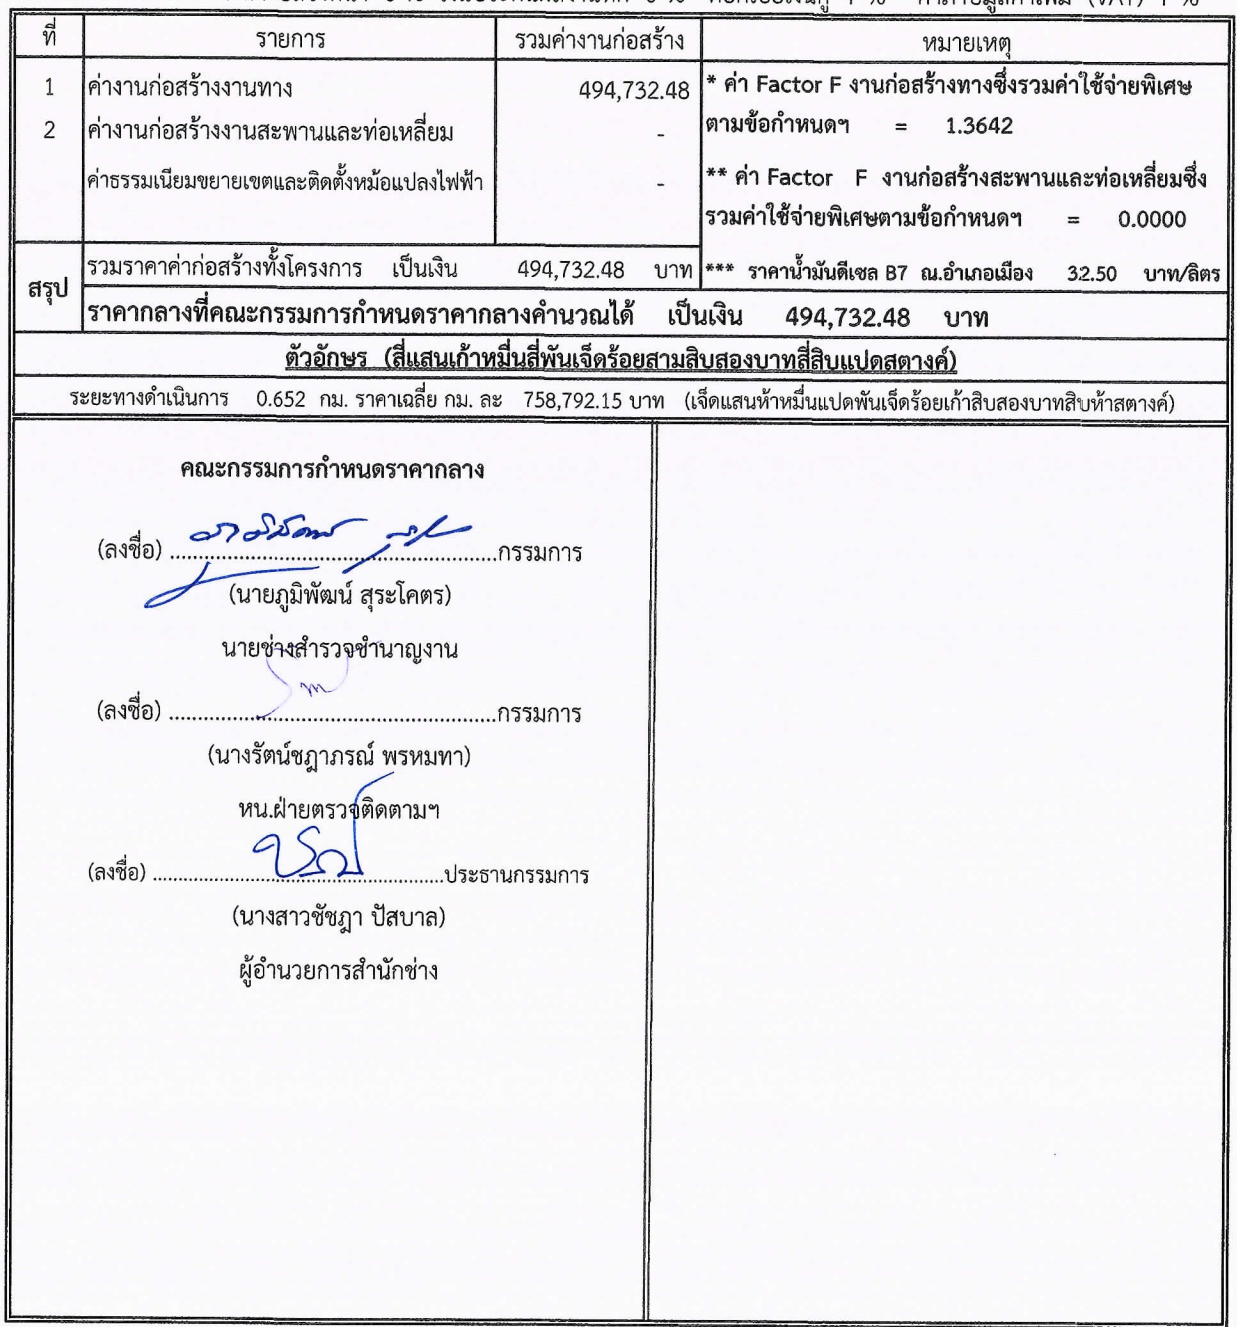 ที่ รายการ รวมค่างานก่อสร้าง หมายเหตุ
1 ค่างานก่อสร้างงานทาง 494,732.48 * ค่า Factor F งานก่อสร้างทางซึ่งรวมค่าใช้จ่ายพิเศษ
2 ค่างานก่อสร้างงานสะพานและท่อเหลี่ยม - ตามข้อกำหนดฯ = 1.3642
ค่าธรรมเนียมขยายเขตและติดตั้งหม้อแปลงไฟฟ้า - ** ค่า Factor F งานก่อสร้างสะพานและท่อเหลี่ยมซึ่ง
รวมค่าใช้จ่ายพิเศษตามข้อกำหนดฯ = 0.0000
สรุป รวมราคาค่าก่อสร้างทั้งโครงการ เป็นเงิน 494,732.48 บาท *** ราคาน้ำมันดีเซล B7 ณ.อำเภอเมือง 32.50 บาท/ลิตร
ราคากลางที่คณะกรรมการกำหนดราคากลางคำนวณได้ เป็นเงิน 494,732.48 บาท
ตัวอักษร (สี่แสนเก้าหมื่นสี่พันเจ็ดร้อยสามสิบสองบาทสี่สิบแปดสตางค์)
ระยะทางดำเนินการ 0.652 กม. ราคาเฉลี่ย กม. ละ 758,792.15 บาท (เจ็ดแสนห้าหมื่นแปดพันเจ็ดร้อยเก้าสิบสองบาทสิบห้าสตางค์)
คณะกรรมการกำหนดราคากลาง
(ลงชื่อ) ........................................................กรรมการ
(นายภูมิพัฒน์ สุระโคตร)
นายช่างสำรวจชำนาญงาน
(ลงชื่อ) ........................................................กรรมการ
(นางรัตน์ชฎาภรณ์ พรหมทา)
หน.ฝ่ายตรวจติดตามฯ
(ลงชื่อ) ..................................................ประธานกรรมการ
(นางสาวชัชฎา ปัสบาล)
ผู้อำนวยการสำนักช่าง